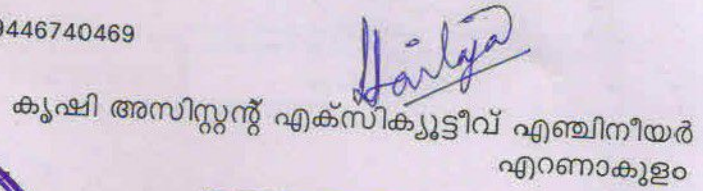 9446740469
കൃഷി അസിസ്റ്റന്റ് എക്സിക്യൂട്ടീവ് എഞ്ചിനീയർ
എറണാകുളം